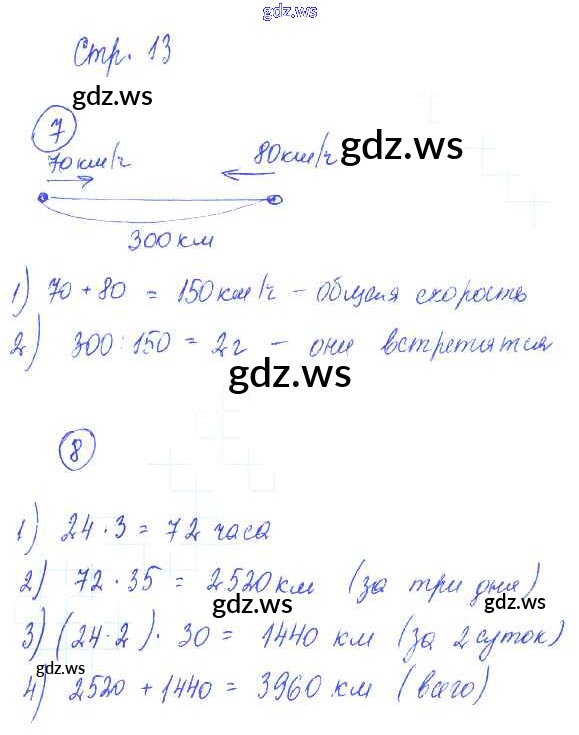 gdz.ws
Стр. 13
gdz.ws
7
70км/ч 80км/ч
gdz.ws
300км
1) 70 + 80 = 150км/ч - общая скорость
2) 300 : 150 = 2ч - они встретятся
gdz.ws
8
1) 24 · 3 = 72 часа
2) 72 · 35 = 2520км (за три дня)
gdz.ws gdz.ws
3) (24 · 2) · 30 = 1440 км (за 2 суток)
gdz.ws
4) 2520 + 1440 = 3960 км (всего)